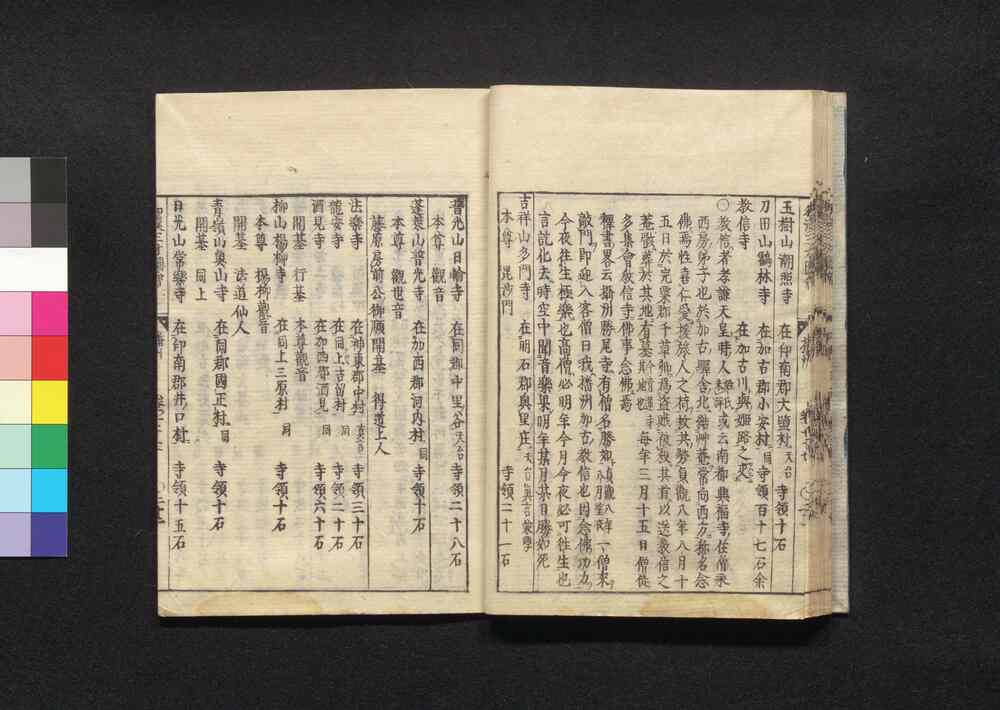 玉樹山潮照寺　在印南郡大鹽村　天台　寺領十石
刀田山鶴林寺　在加古郡小安村　同　寺領百十七石余
教信寺　在加古川與姫路之
○教信者孝謙天皇時人　或云南都興福寺住僧
西房弟子也於加古驛舍北結艸菴常向西方称名念
佛焉性喜仁愛旅人之荷扶其勞貞觀八年八月十
五日於完粟郡千草為盜賊被殺其首以送教信之
菴葬於其地有墓 每年三月十五日僧徒
多集會教信寺佛事念佛焉
釋書畧云攝州勝尾寺有僧名勝如貞觀八年八月 一僧來
敲門即延入客僧曰我播州加古教信也因念佛功力
今夜往生極樂也高僧必明年今月今夜必可徃生也
言訖化去時空中聞音樂果明年某月某日勝如死
吉祥山多門寺　在明石郡奧里庄　天台真言兼學　寺領二十一石
本尊　毘沙門
普光山日輪寺　在同郡中里谷　天台　寺領二十八石
本尊　觀音
蓬萊山普光寺　在加西郡河内村　同　寺領十石
本尊　觀世音
藤原房前公御願開基　得道上人
法樂寺　在神東郡中村　真言　寺領三十石
龍安寺　在同上吉留村　同　寺領二十石
酒見寺　在加西郡酒見　同　寺領六十石
開基　行基　本尊觀音
柳山楊柳寺　在同上三原村　同　寺領十石
本尊　楊柳觀音
開基　法道仙人
青嶺山奥山寺　在同郡國正村　同　寺領十石
開基　同上
日光山常樂寺　在印南郡井口村　寺領十五石